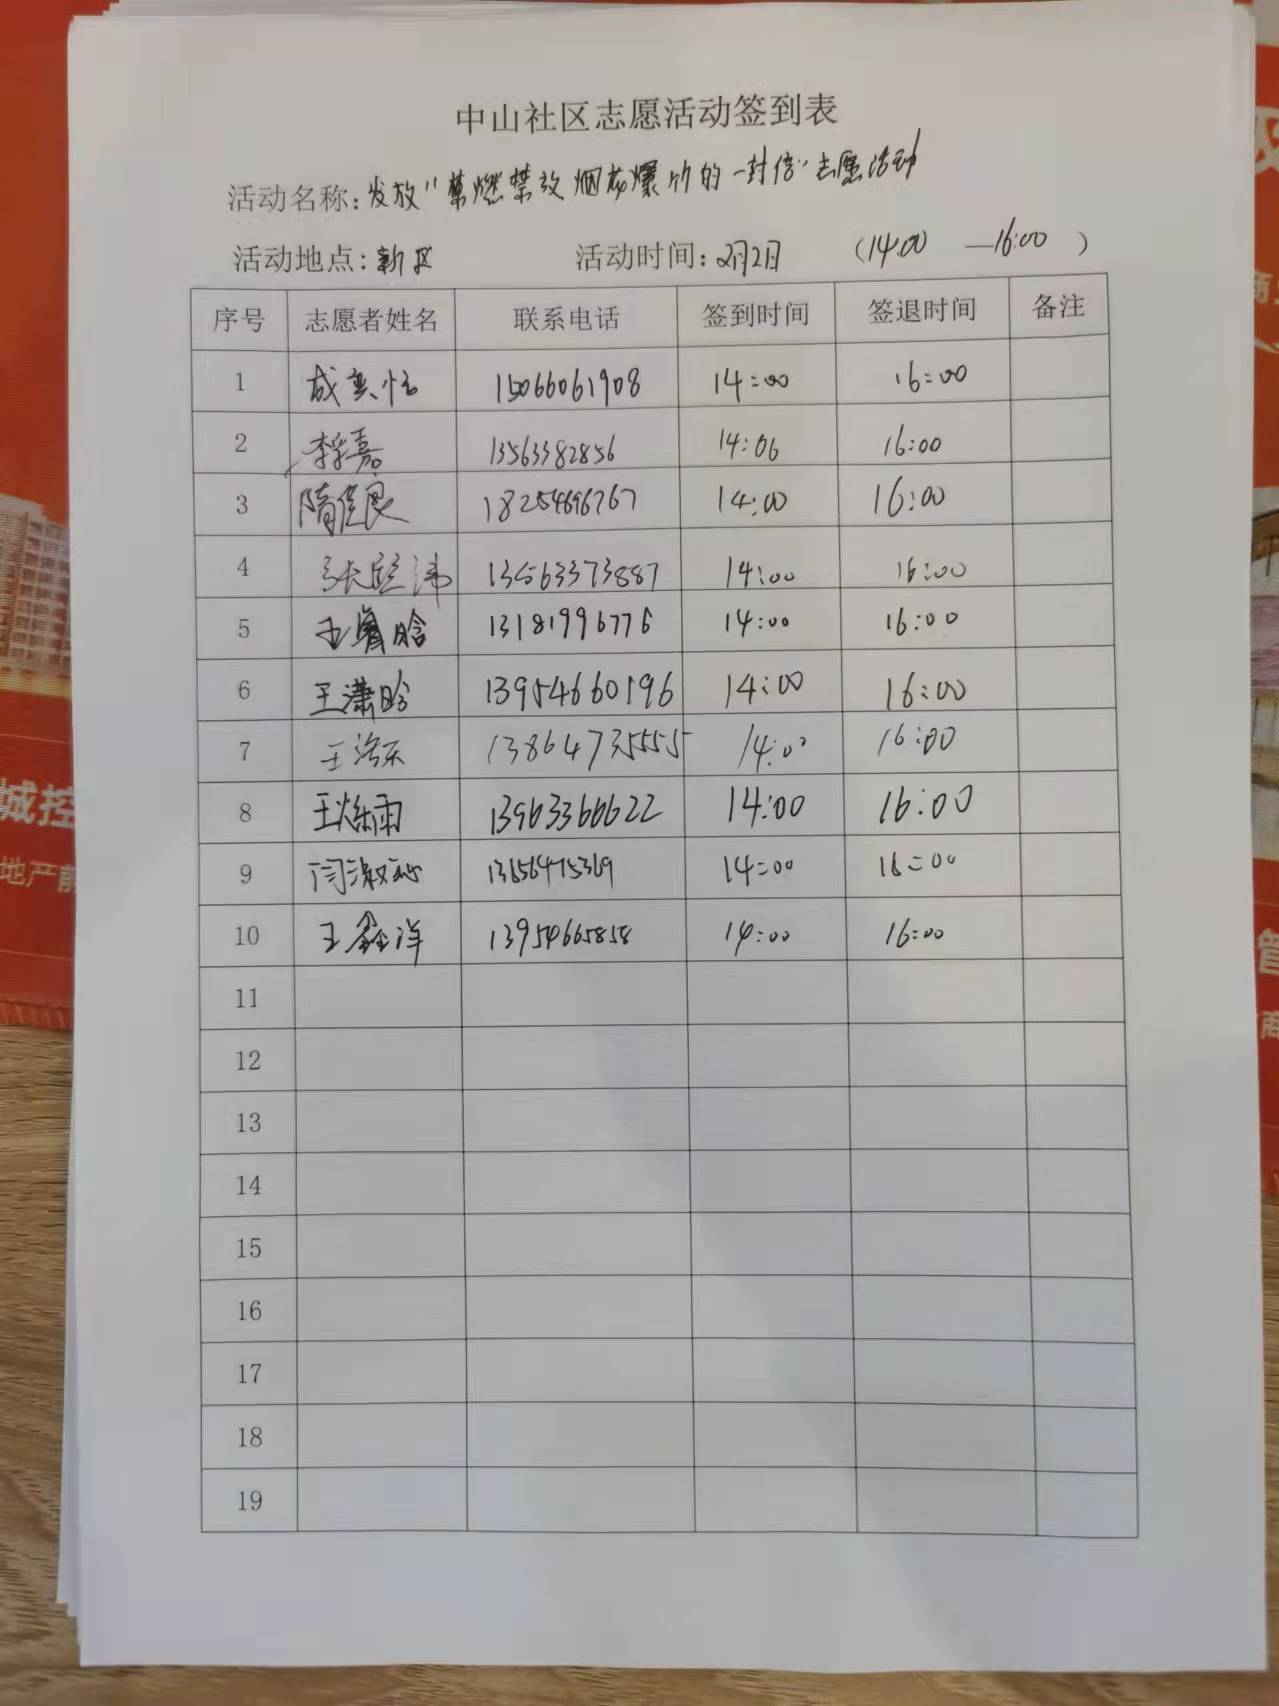 中山社区志愿活动签到表
活动名称:发放“禁燃禁放烟花爆竹的一封信”志愿活动
活动地点:新区 活动时间:2月2日 (14:00 —16:00 )
序号 志愿者姓名 联系电话 签到时间 签退时间 备注
1 15066061908 14:00 16:00
2 13563382856 14:06 16:00
3 隋佳良 18254696767 14:00 16:00
4 13563373887 14:00 16:00
5 13181996776 14:00 16:00
6 王潇晗 13954660196 14:00 16:00
7 13864735555 14:00 16:00
8 王烁雨 13963366622 14:00 16:00
9 13656475369 14:00 16:00
10 王鑫洋 13954665858 14:00 16:00
11
12
13
14
15
16
17
18
19
城控
地产前
管
商